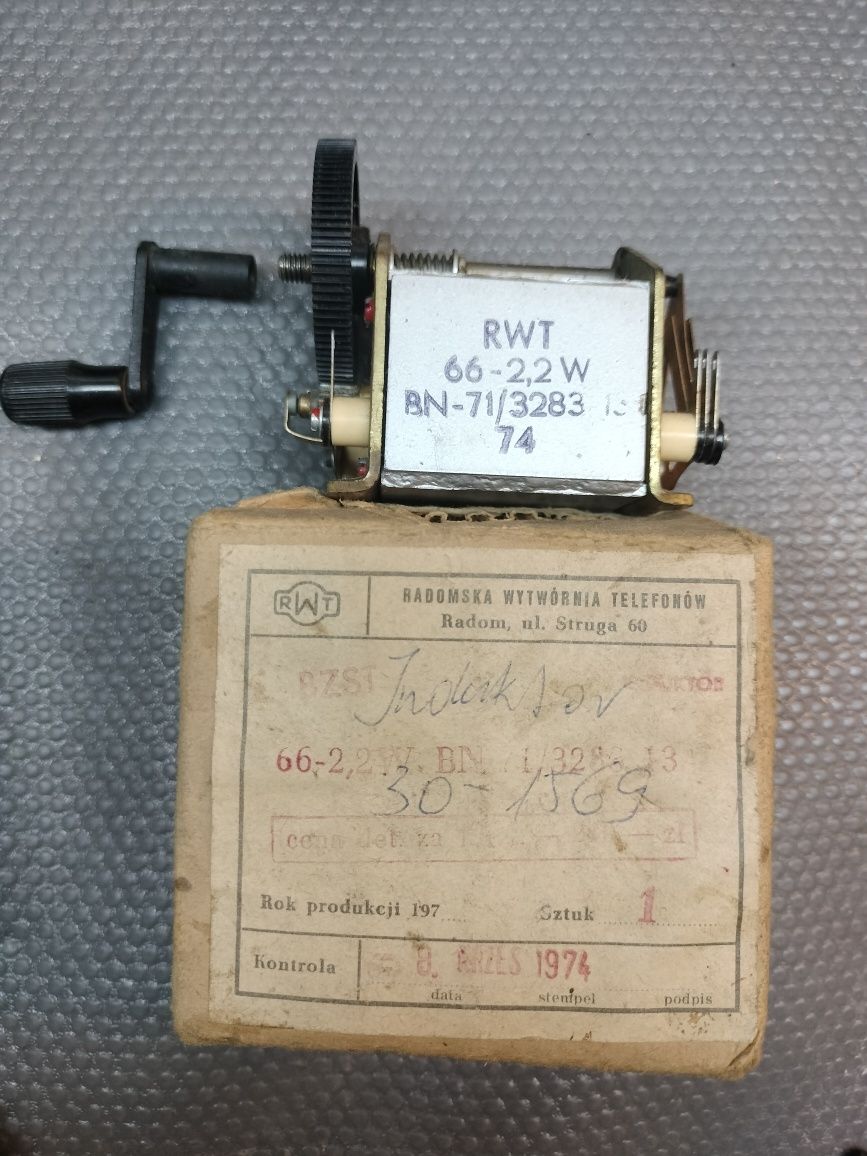 RWT
66-2,2 W
BN-71/3283 13
74
RWT
RADOMSKA WYTWÓRNIA TELEFONÓW
Radom, ul. Struga 60
BZST
Induktor
66-2,2W. BN 71/3283 13
30-1569
cena det. za zł
Rok produkcji 197
Sztuk 1
Kontrola
8. WRZES 1974
data stempel podpis